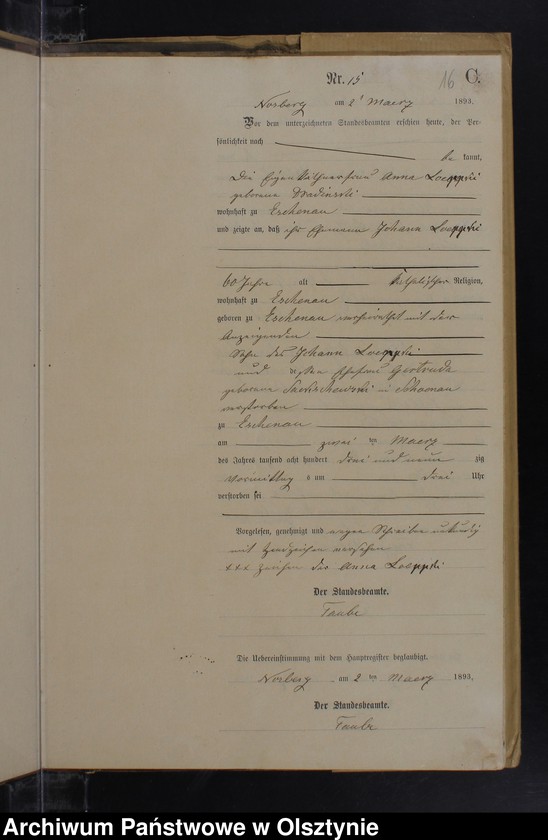 16
Nr. 15
C.
Norberg am 2 Maerz 1893.
Vor dem unterzeichneten Standesbeamten erschien heute, der Per-
sönlichkeit nach
be kannt,
Die Anna Loeppki
geborene
wohnhaft zu Eschenau
und zeigte an, daß ihr Ehemann Johann Loeppki
60 Jahre alt Katholischer Religion,
wohnhaft zu Eschenau
geboren zu Eschenau verheirathet mit der
Anzeigenden
Sohn des Johann Loeppki
und dessen Ehefrau Gertrude
geborene in Schoenau
verstorben
zu Eschenau
am zwei ten Maerz
des Jahres tausend acht hundert drei und neun zig
Vormittag s um drei Uhr
verstorben sei
Vorgelesen, genehmigt und wegen Schreibensunkundig
mit Handzeichen versehen
+++ Zeichen der Anna Loeppki
Der Standesbeamte.
Taube
Die Uebereinstimmung mit dem Hauptregister beglaubigt.
Norberg am 2 ten Maerz 1893.
Der Standesbeamte.
Taube
Archiwum Państwowe w Olsztynie